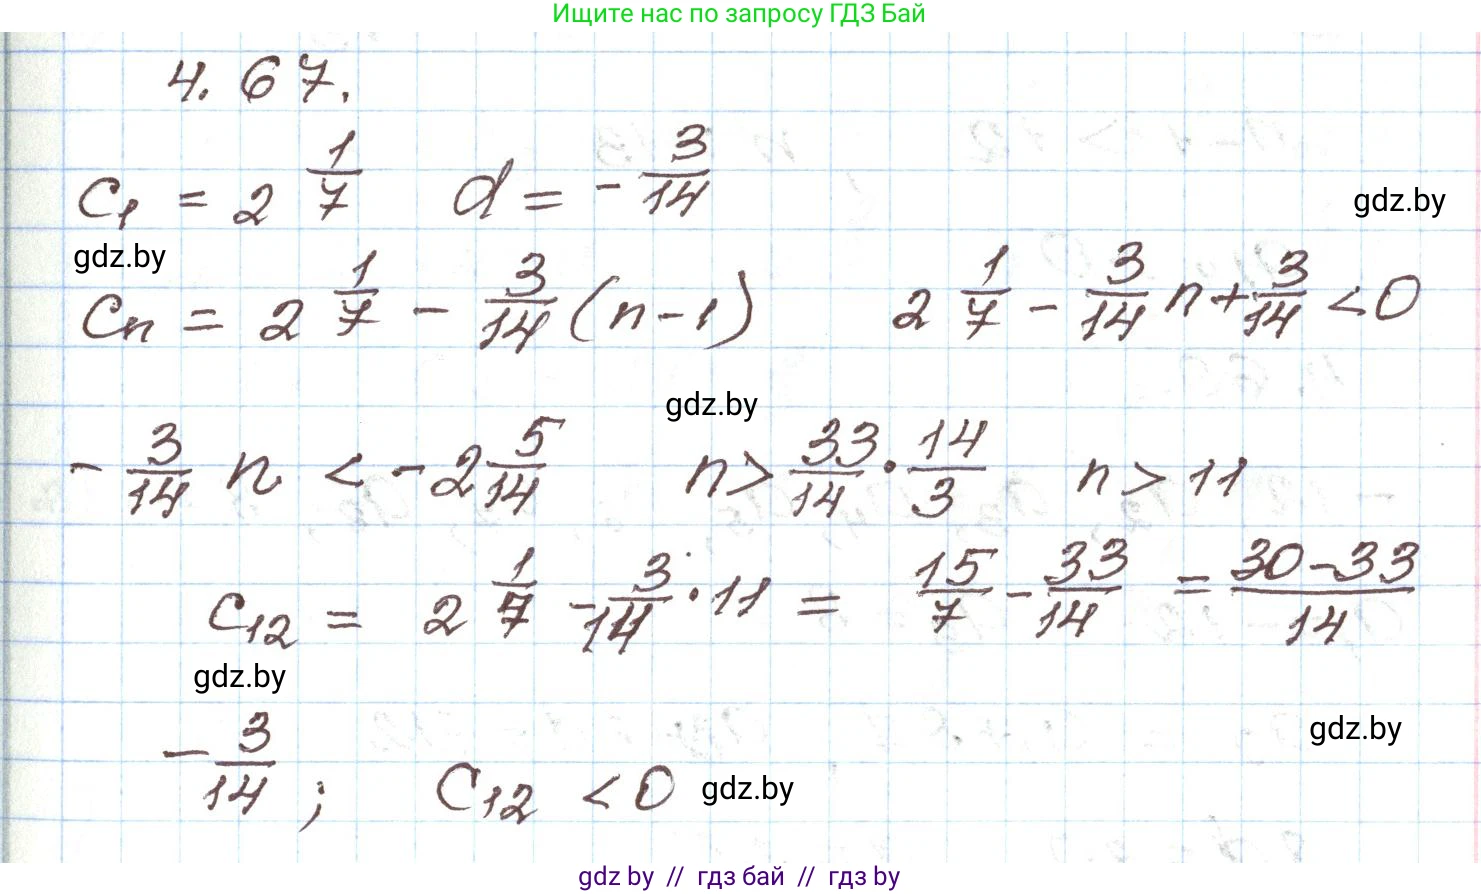 Ищите нас по запросу ГДЗ Бай
4.67.
c₁ = 2 1/7 d = - 3/14
gdz.by
gdz.by
cn = 2 1/7 - 3/14 (n-1) 2 1/7 - 3/14 n + 3/14 < 0
gdz.by
- 3/14 n < - 2 5/14 n > 33/14 · 14/3 n > 11
c₁₂ = 2 1/7 - 3/14 · 11 = 15/7 - 33/14 = 30-33/14
gdz.by
gdz.by
- 3/14 ; c₁₂ < 0 gdz.by
gdz by // гдз бай // гдз by